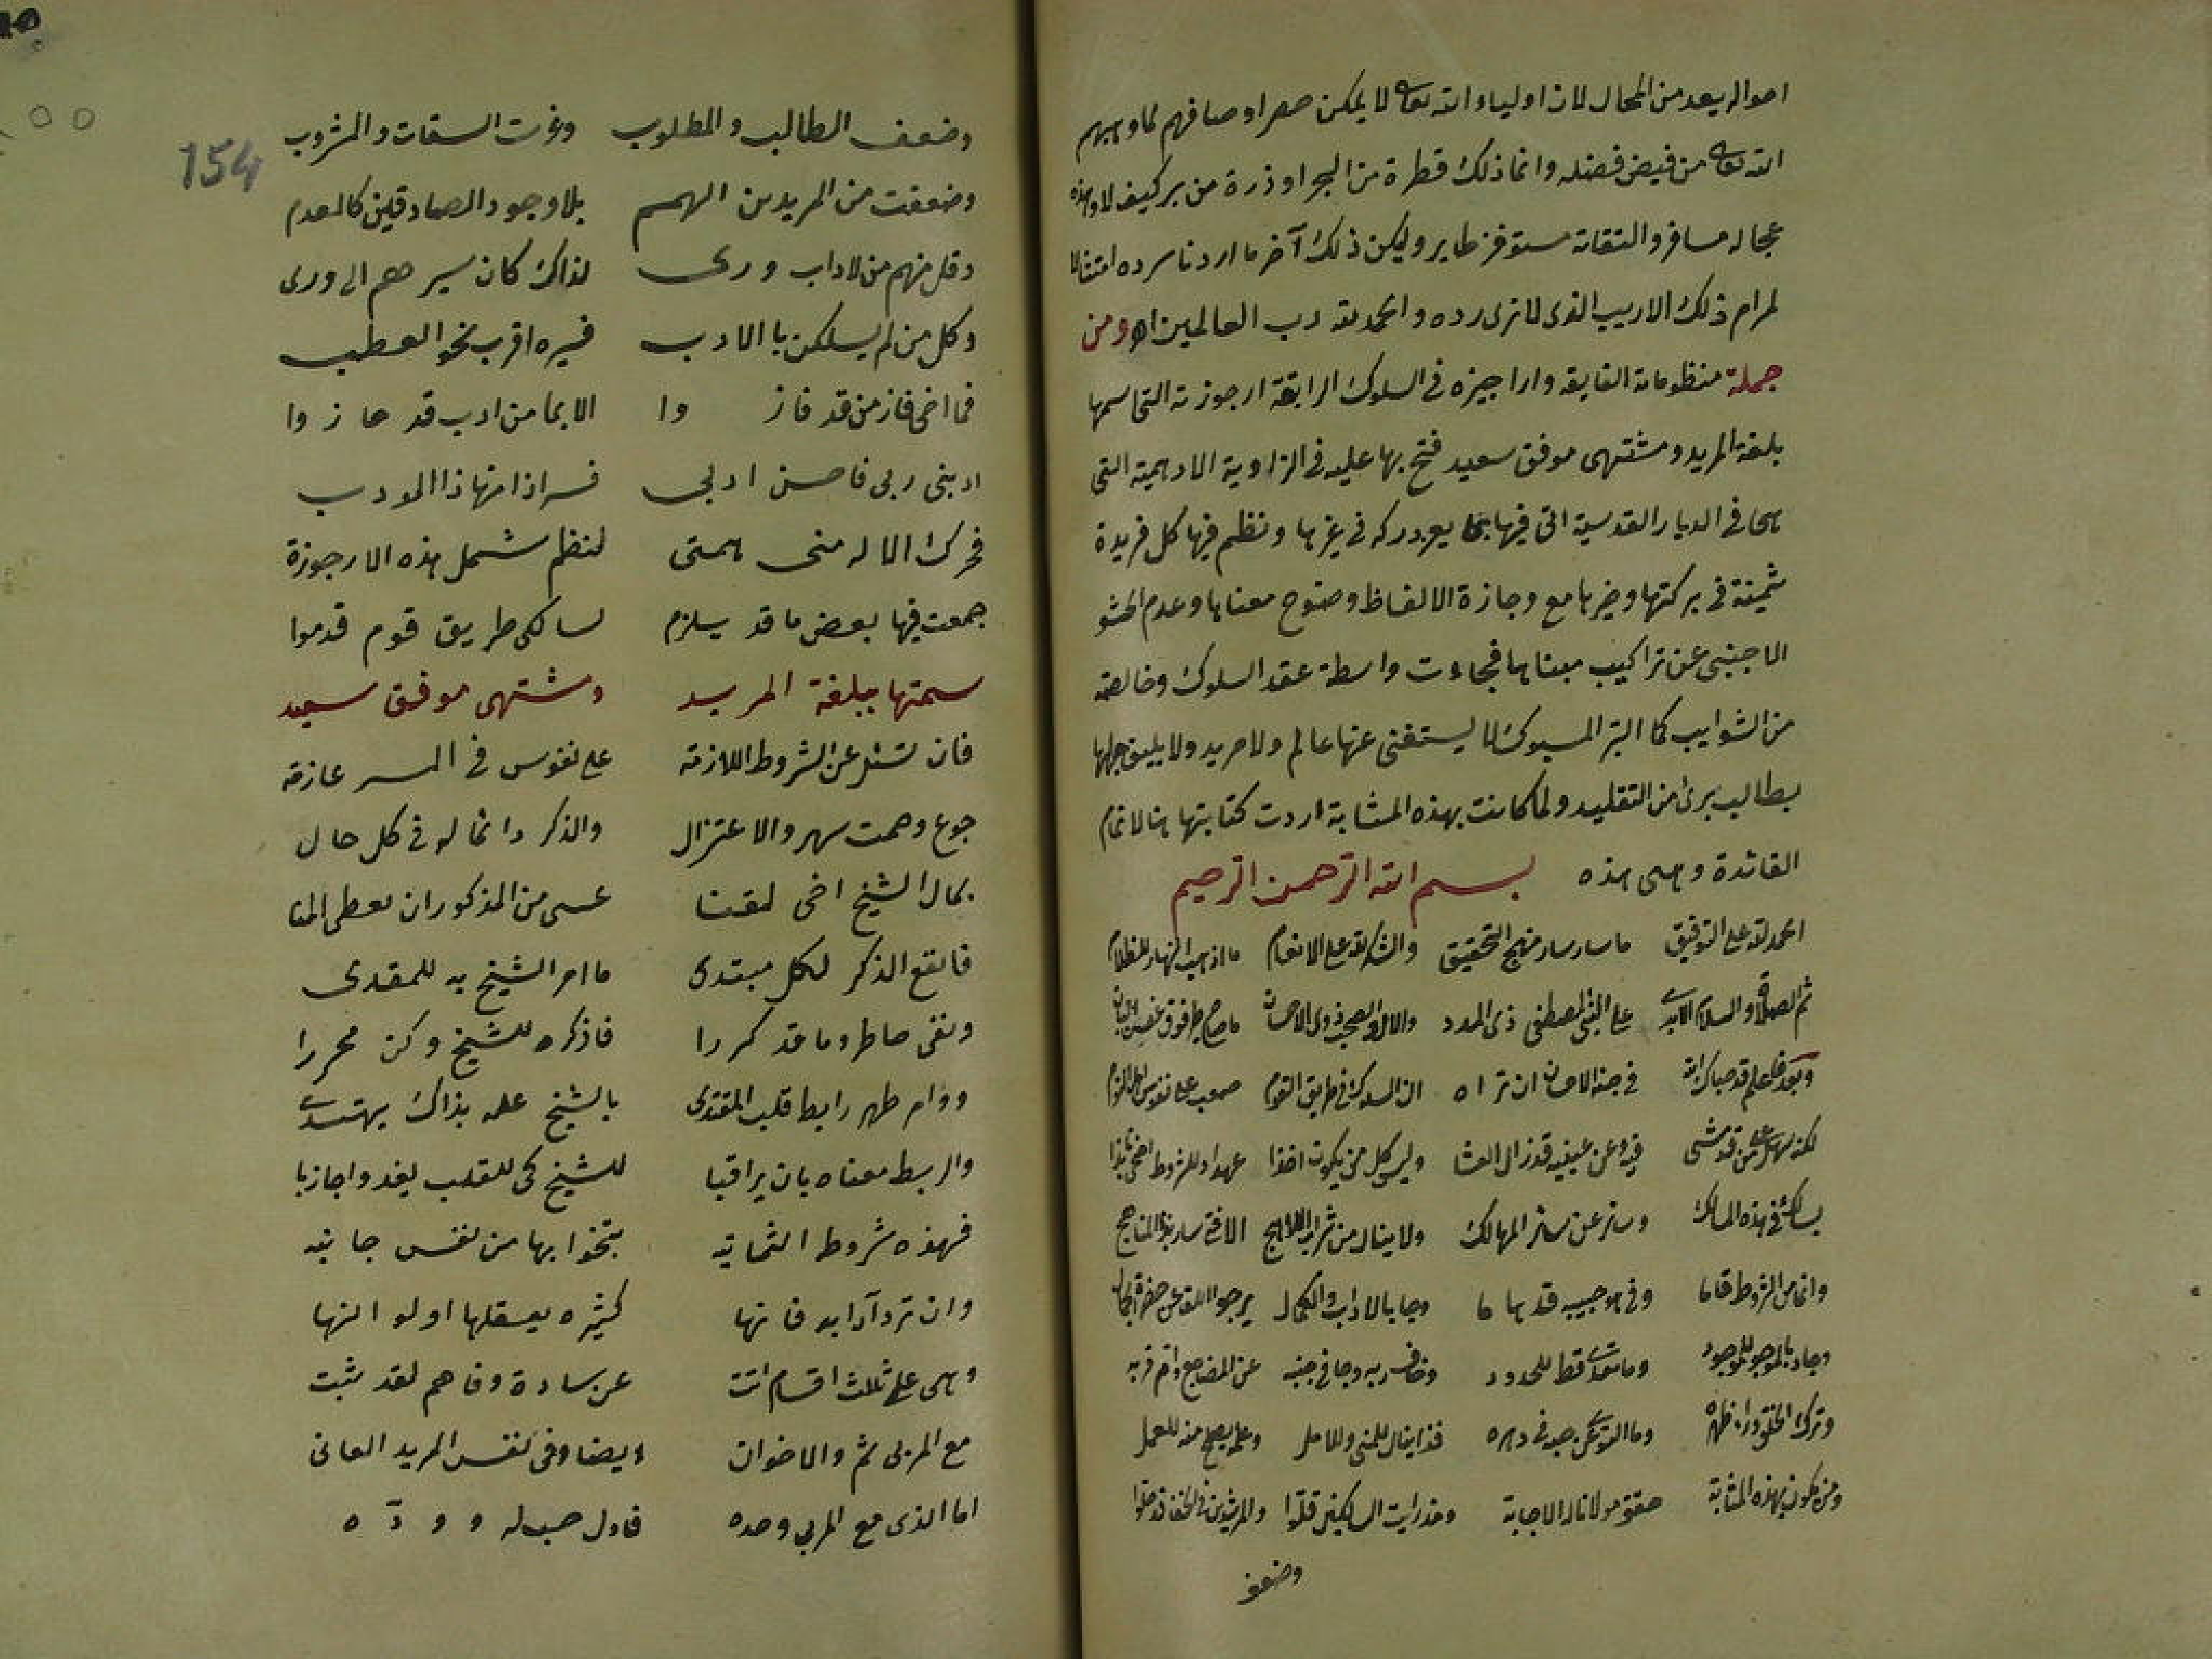 احواله يعد من المحال لان اولياء الله تعالى لا يمكن حصر اوصافهم لما وهبهم
الله تعالى من فيض فضله وانما ذلك قطرة من البحر او ذرة من بر كيف لا وهذه
عجاله مسافر والتقاته مستوفز طاير وليكن ذلك آخر ما اردنا سرده امتثالا
لمرام ذلك الاريب الذى لا ترى رده والحمد لله رب العالمين اه ومن
جملة منظوماته الفايقه واراجيزه في السلوك الرايقة ارجوزته التى اسمها
بلغة المريد ومشتهى موفق سعيد فتح بها عليه في الزاوية الادهمية التى
هى في الديار القدسية التى فيها يعز دركه في غيرها ونظم فيها كل فريدة
ثمينة في بركتها وخيرها مع وجازة الالفاظ وضوح معناها وعدم الحشو
الاجنبى عن تراكيب مبناها فجاءت واسطة عقد السلوك وخالصة
من الشوايب كا التبر المسبوك لا يستغنى عنها عالم ولا مريد ولا يليق جهلها
بطالب برئ من التقليد ولما كانت بهذه المثابة اردت كتابتها هنا لاتمام
الفائدة وهى هذه بسم الله الرحمن الرحيم
الحمد لله على التوفيق ما سار سار منهج التحقيق والشكر لله على الانعام ما اذهب النهار للظلام
ثم الصلاة والسلام الابدى على النبى المصطفى ذى المدد والال والصحب ذوى الاحسان ما صاح طير فوق غصن البان
وبعد فاعلم قد حباك الله في جنة الاحسان ان تراه ان السلوك في طريق القوم صعب على نفوس اهل اللوم
لكنه سهل على من قد مشى فيه وعن عينيه قد زال الغشا وليس كل من يكون اخذا عهدا وللشروط اضحى نابذا
بسالك في هذه المسالك وسائر عن سائر المهالك ولا ينال من شراب اللاهج الا فتى سار بذا المناهج
وانما من الشروط قاما وفى حبيبه قد هاما وجا بالاداب والكمال يرجو اللقا من حضرة الجمال
وجاد بالموجود للموجود وما تعدى قط للحدود وخاف ربه وجافى جنبه عن المضاجع وام قربه
وترك الخلق وراء ظهره وما التوى عن حبه في دهره فذا ينال للمنى وللامل وعلمه يصح منه للعمل
ومن يكون بهذه المثابة حقق مولانا له الاجابة وقد رايت السالكين قلوا والمرشدين في الخفا قد حلوا
وضعف
154
وضعف الطالب والمطلوب وغرت السقات والمشروب
وضعفت من المريدين الهمم بلا وجود الصادقين كالعدم
وقل منهم من لاداب ورى لذاك كان سيرهم الى ورى
وكل من لم يسلكن با الادب فسيره اقرب نحو العطب
فما اخى فاز من قد فاز وا الا بما من ادب قد حاز وا
ادبنى ربى فاحسن ادبى فسر اذا منها ذا المودب
فحرك الاله منى همتى لنظم شمل هذه الارجوزة
جمعت فيها بعض ما قد يلزم لسالكى طريق قوم قدموا
سميتها ببلغة المريد ومشتهى موفق سعيد
فان تسئل عن الشروط اللازمه على نفوس في المسير عازمه
جوع وصمت سهر والاعتزال والذكر دائما له في كل حال
بحال الشيخ اخى لقنا عسى من المذكور ان يعطى المنا
فانفع الذكر لكل مبتدى ما امر الشيخ به للمقتدى
ونفى خاطر وما قد كررا فاذكره للشيخ وكن محررا
ودوام طهر رابط قلب المقتدى بالشيخ عله بذاك يهتدى
والربط معناه بان يراقبا للشيخ كى للقلب يغدو اجاذبا
فهذه شروط الثمانيه تنجو ابها من نفس جانيه
وان ترد آدابه فانها كثيره يعقلها اولو النها
وهى على ثلث اقسام اتت عن سادة وفاهم لقد ثبت
مع المربى ثم والاخوان وايضا وفى نفس المريد العانى
اما الذى مع المربى وحده فاول حب له وودّه